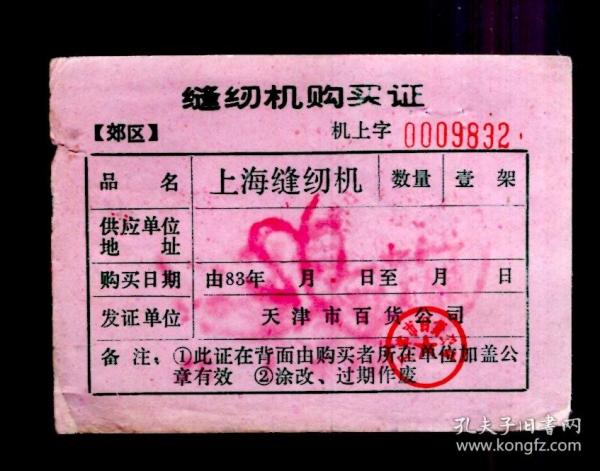 缝纫机购买证
【郊区】 机上字 0009832
品名 上海缝纫机 数量 壹架
供应单位
地址
购买日期 由83年 月 日至 月 日
发证单位 天津市百货公司
备注：①此证在背面由购买者所在单位加盖公
章有效 ②涂改、过期作废
孔夫子旧书网
www.kongfz.com